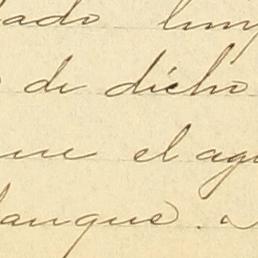 ado limp
de dicho
ue el agu
anque.